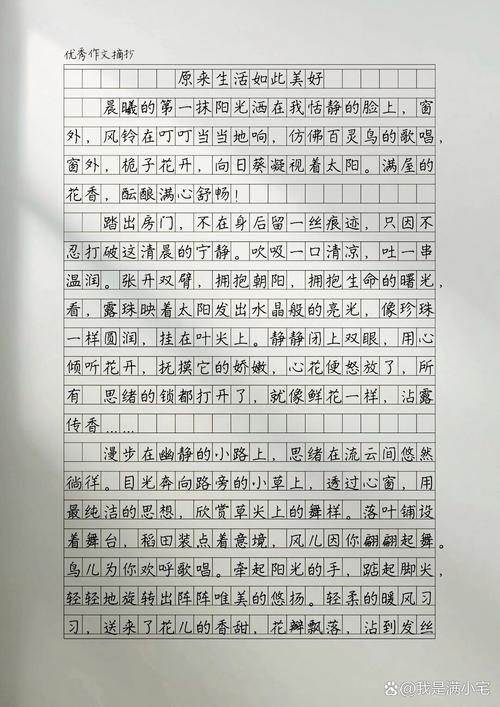 优秀作文摘抄
原来生活如此美好
晨曦的第一抹阳光洒在我恬静的脸上，窗
外，风铃在叮叮当当地响，仿佛百灵鸟的歌唱，
窗外，栀子花开，向日葵凝视着太阳。满屋的
花香，酝酿满心舒畅！
踏出房门，不在身后留一丝痕迹，只因不
忍打破这清晨的宁静。吹吸一口清凉，吐一串
温润。张开双臂，拥抱朝阳，拥抱生命的曙光，
看，露珠映着太阳发出水晶般的亮光，像珍珠
一样圆润，挂在叶尖上。静静闭上双眼，用心
倾听花开，抚摸它的娇嫩，心花便怒放了，所
有 思绪的锁都打开了，就像鲜花一样，沾露
传香……
漫步在幽静的小路上，思绪在流云间悠然
徜徉。目光奔向路旁的小草上，透过心窗，用
最纯洁的思想，欣赏草尖上的舞样。落叶铺设
着舞台，稻田装点着意境，风儿因你翩翩起舞。
鸟儿为你欢呼歌唱。牵起阳光的手，踮起脚尖，
轻轻地旋转出阵阵唯美的悠扬。轻柔的暖风习
习，送来了花儿的香甜，花瓣飘落，沾到发丝
@我是满小宅